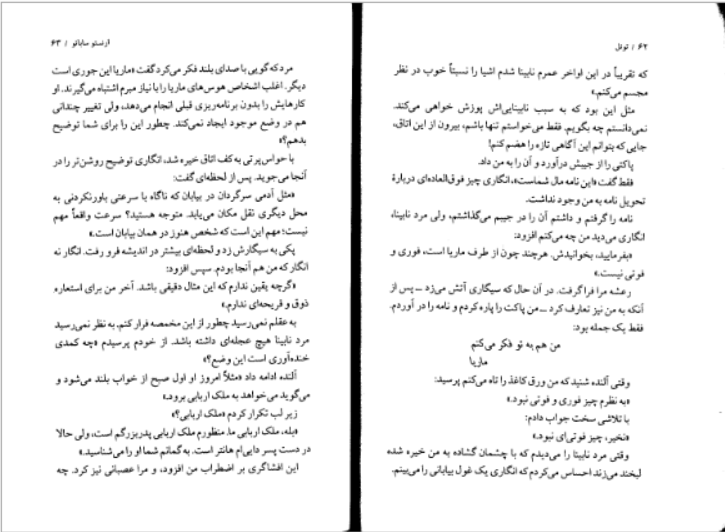 ۶۲ / تونل
که تقریباً در این اواخر عمرم نابینا شدم اشیا را نسبتاً خوب در نظر
مجسم می‌کنم.»
مثل این بود که به سبب نابینایی‌اش پوزش خواهی می‌کند.
نمی‌دانستم چه بگویم. فقط می‌خواستم تنها باشم، بیرون از این اتاق،
جایی که بتوانم این آگاهی تازه را هضم کنم!
پاکتی را از جیبش درآورد و آن را به من داد.
فقط گفت «این نامه مال شماست»، انگاری چیز فوق‌العاده‌ای دربارهٔ
تحویل نامه به من وجود نداشت.
نامه را گرفتم و داشتم آن را در جیبم می‌گذاشتم، ولی مرد نابینا،
انگاری می‌دید من چه می‌کنم افزود:
«بفرمایید، بخوانیدش. هرچند چون از طرف ماریا است، فوری و
فوتی نیست.»
رعشه مرا فرا گرفت. در آن حال که سیگاری آتش می‌زد ــ پس از
آنکه به من نیز تعارف کرد ــ من پاکت را پاره کردم و نامه را در آوردم.
فقط یک جمله بود:
من هم به تو فکر می‌کنم
ماریا
وقتی آلنده شنید که من ورق کاغذ را تاه می‌کنم پرسید:
«به نظرم چیز فوری و فوتی نبود.»
با تلاشی سخت جواب دادم:
«نخیر، چیز فوتی‌ای نبود.»
وقتی مرد نابینا را می‌دیدم که با چشمان گشاده به من خیره شده
لبخند می‌زند احساس می‌کردم که انگاری یک غول بیابانی را می‌بینم.
ارنستو ساباتو / ۶۳
مرد که گویی با صدای بلند فکر می‌کرد گفت «ماریا این جوری است
دیگر. اغلب اشخاص هوس‌های ماریا را با نیاز مبرم اشتباه می‌گیرند. او
کارهایش را بدون برنامه‌ریزی قبلی انجام می‌دهد، ولی تغییر چندانی
هم در وضع موجود ایجاد نمی‌کند. چطور این را برای شما توضیح
بدهم؟»
با حواس‌پرتی به کف اتاق خیره شد، انگاری توضیح روشن‌تر را در
آنجا می‌جوید. پس از لحظه‌ای گفت:
«مثل آدمی سرگردان در بیابان که ناگاه با سرعتی باورنکردنی به
محل دیگری نقل مکان می‌یابد. متوجه هستید؟ سرعت واقعاً مهم
نیست؛ مهم این است که شخص هنوز در همان بیابان است.»
پکی به سیگارش زد و لحظه‌ای بیشتر در اندیشه فرو رفت. انگار نه
انگار که من هم آنجا بودم. سپس افزود:
«گرچه یقین ندارم که این مثال دقیقی باشد. آخر من برای استعاره
ذوق و قریحه‌ای ندارم.»
به عقلم نمی‌رسید چطور از این مخمصه فرار کنم. به نظر نمی‌رسید
مرد نابینا هیچ عجله‌ای داشته باشد. از خودم پرسیدم «چه کمدی
خنده‌آوری است این وضع؟»
آلنده ادامه داد «مثلاً امروز او اول صبح از خواب بلند می‌شود و
می‌گوید می‌خواهد به ملک اربابی برود.»
زیر لب تکرار کردم «ملک اربابی؟»
«بله، ملک اربابی ما. منظورم ملک اربابی پدربزرگم است، ولی حالا
در دست پسر دایی‌ام هانتر است. به گمانم شما او را می‌شناسید.»
این افشاگری بر اضطراب من افزود، و مرا عصبانی نیز کرد. چه